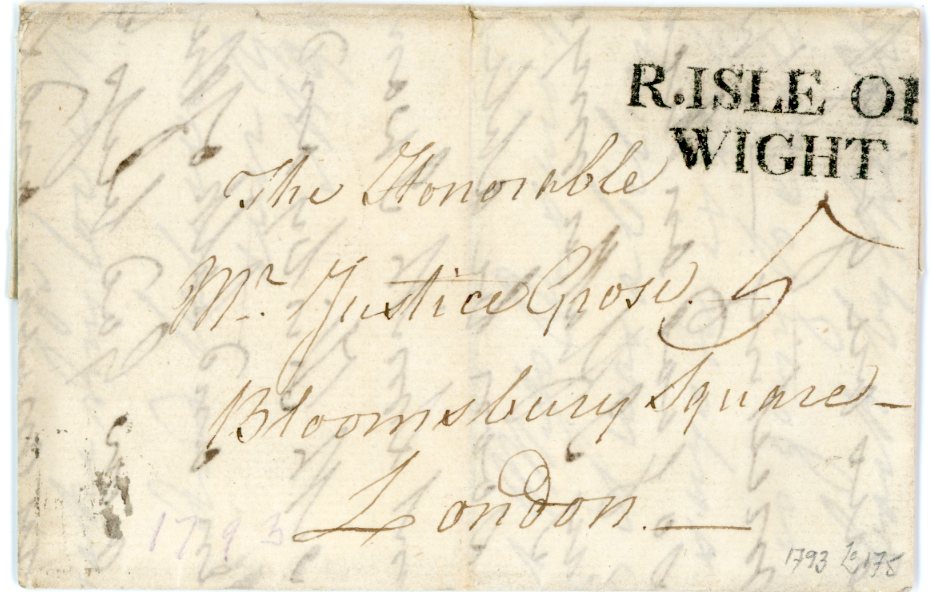 R.ISLE OF
WIGHT
The Honorable
Mr. Justice Grose. 5
Bloomsbury Square —
London. —
1793
1793 Lo 175